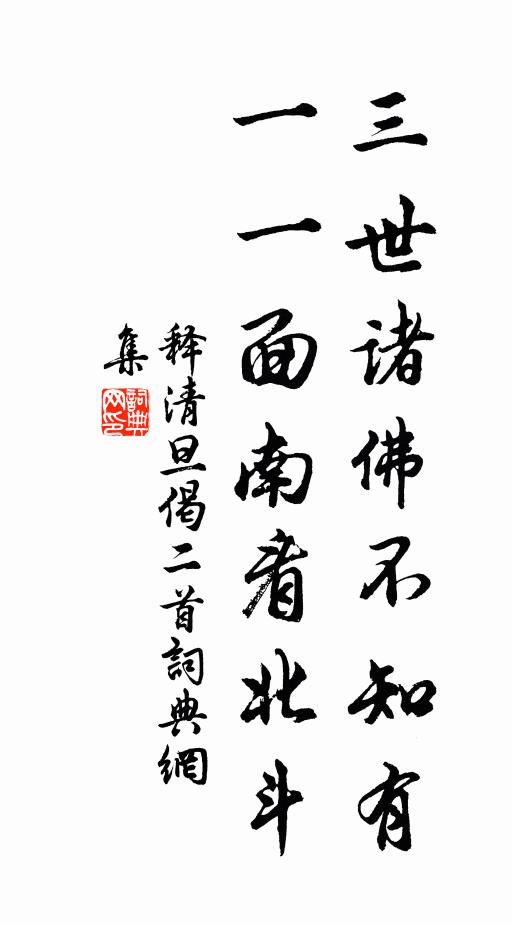 三世诸佛不知有
一一面南看北斗
释清旦偈二首詞典網
集
詞典
网印